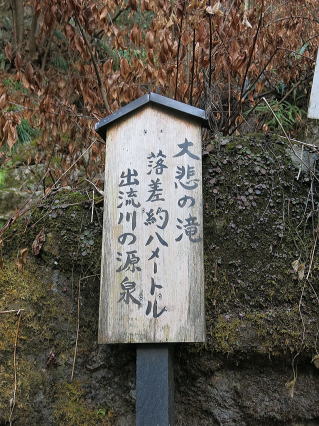 大悲の滝
落差約八メートル
出流川の源泉